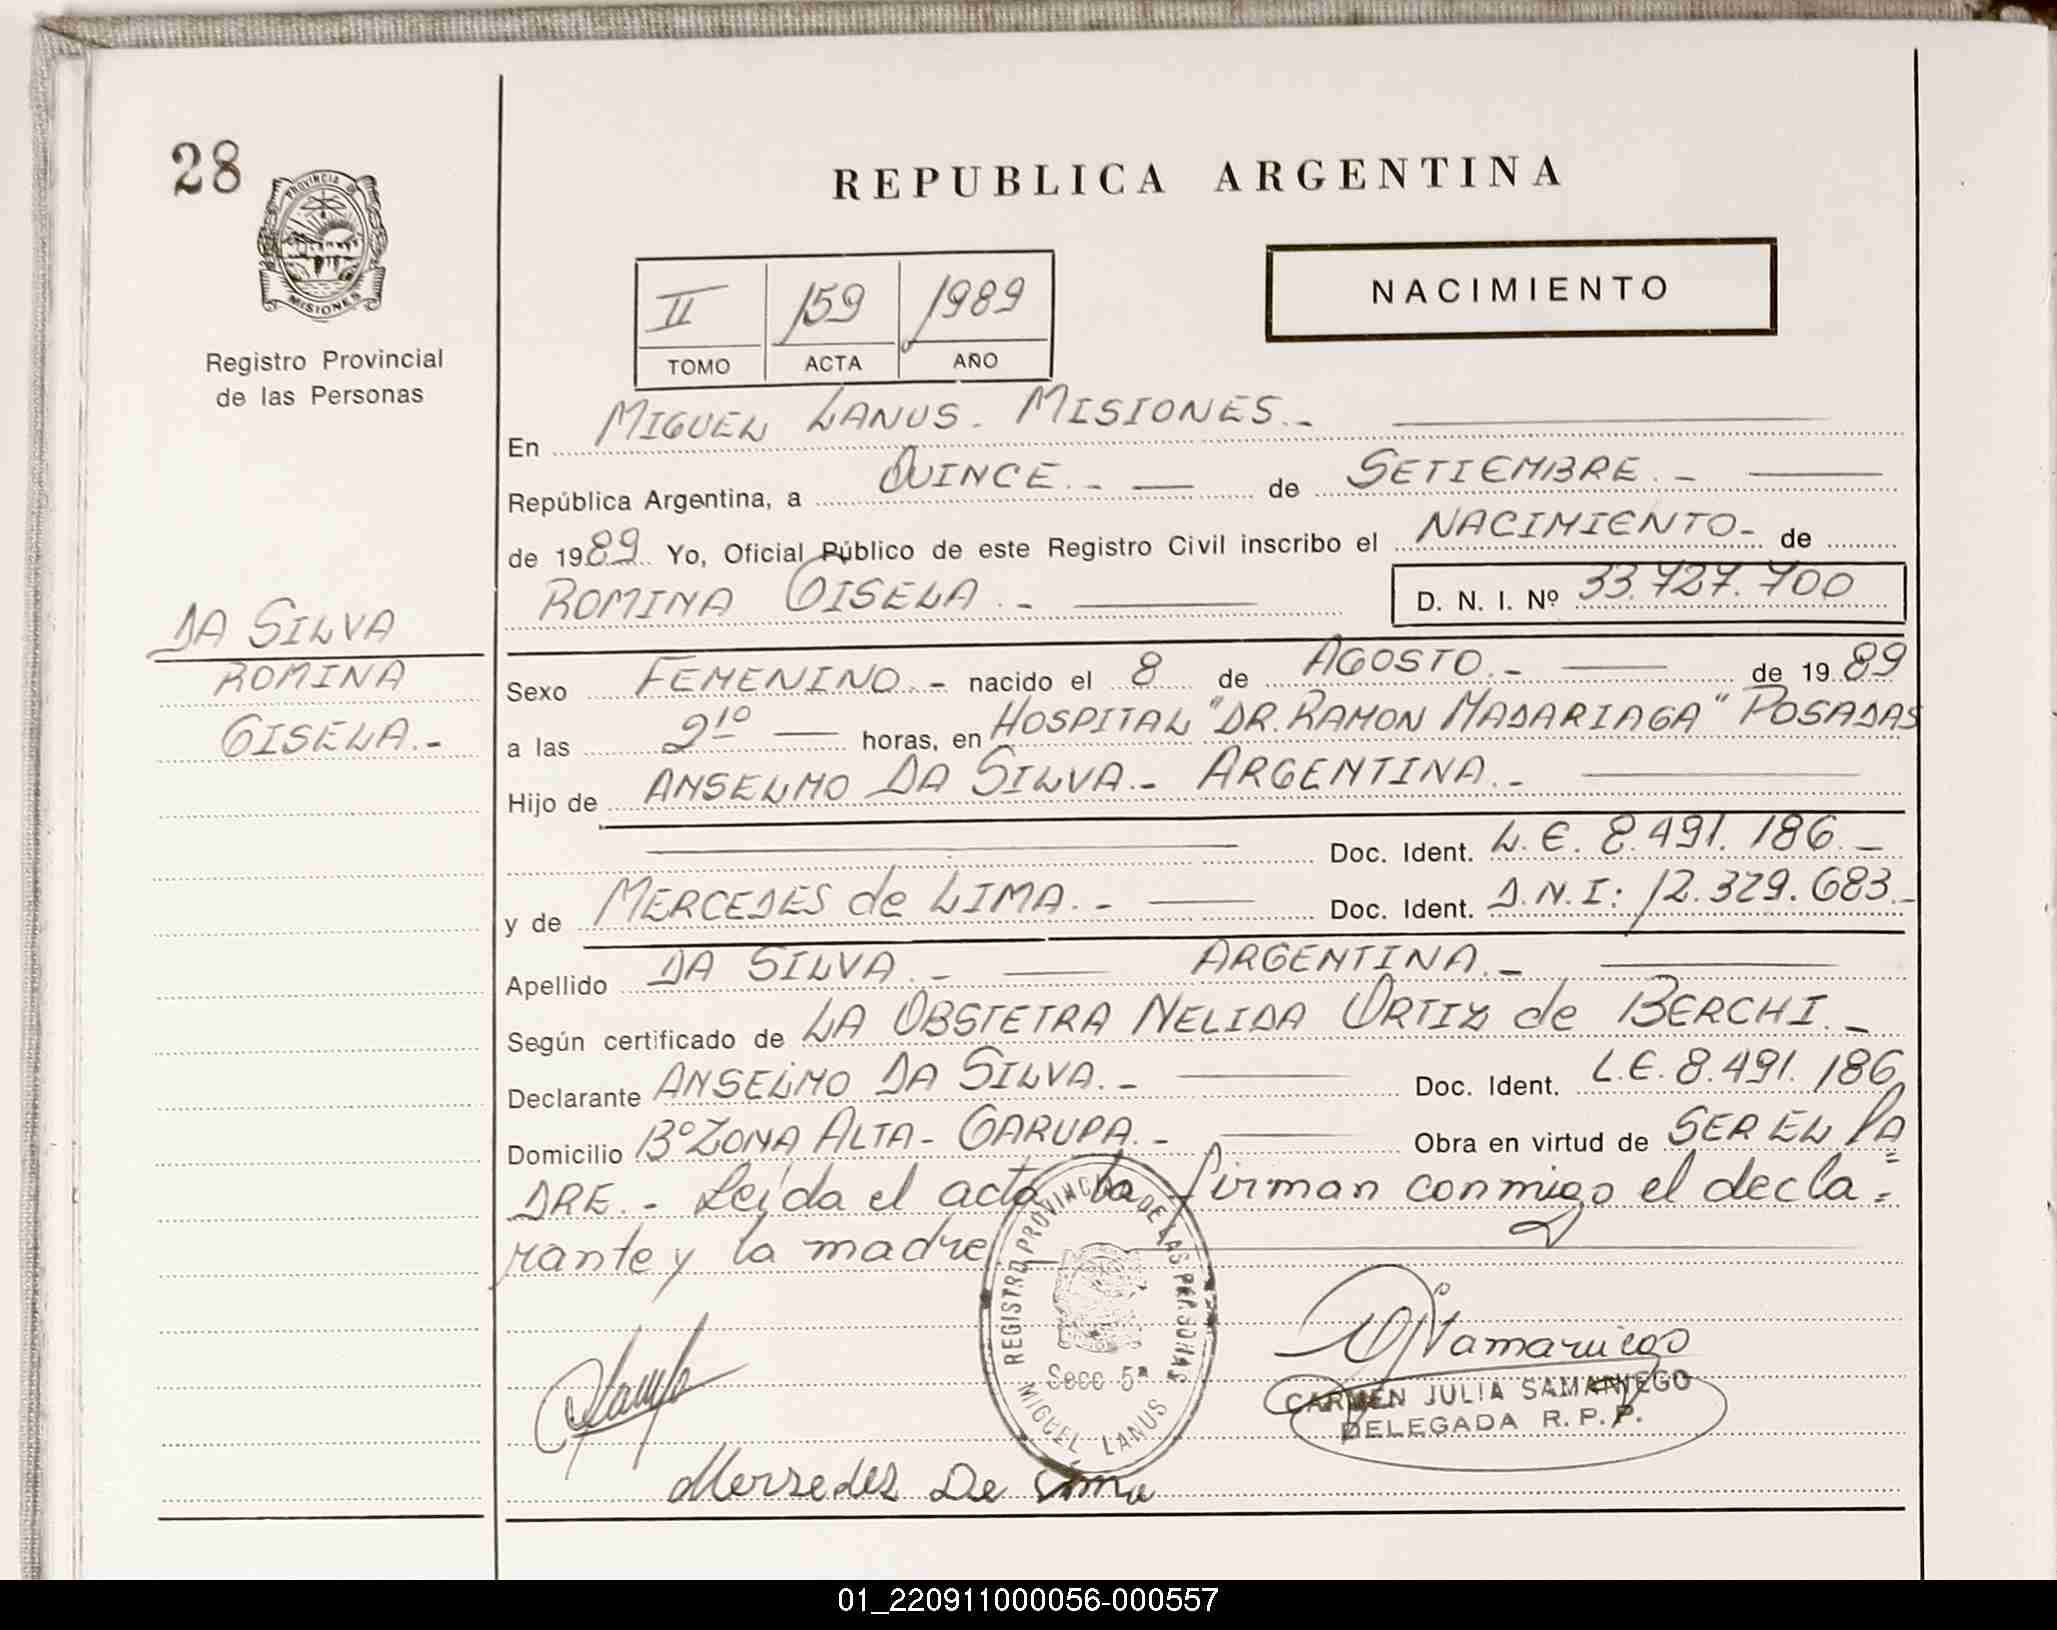 28
PROVINCIA DE
MISIONES
Registro Provincial
de las Personas
DA SILVA
ROMINA
GISELA.-
REPUBLICA ARGENTINA
NACIMIENTO
II 159 1989
TOMO ACTA AÑO
En MIGUEL LANUS. MISIONES.-
República Argentina, a QUINCE.- de SETIEMBRE.-
de 1989 Yo, Oficial Público de este Registro Civil inscribo el NACIMIENTO- de
ROMINA GISELA.- D. N. I. Nº 33.727.700
Sexo FEMENINO.- nacido el 8 de AGOSTO.- de 1989
a las 9¹⁰ horas, en HOSPITAL "DR. RAMON MADARIAGA" POSADAS
Hijo de ANSELMO DA SILVA.- ARGENTINA.-
Doc. Ident. L.E. 8.491.186.-
y de MERCEDES de LIMA.- Doc. Ident. D.N.I: 12.329.683.-
Apellido DA SILVA.- ARGENTINA.-
Según certificado de LA OBSTETRA NELIDA ORTIZ de BERCHI.-
Declarante ANSELMO DA SILVA.- Doc. Ident. L.E. 8.491.186
Domicilio Bº ZONA ALTA- GARUPA.- Obra en virtud de SER EL PA=
DRE.- Leída el acta la firman conmigo el decla=
rante y la madre
REGISTRO PROVINCIAL DE LAS PERSONAS
Secc 5ª
MIGUEL LANUS
CARMEN JULIA SAMANIEGO
DELEGADA R. P. P.
Mersedes De Lima
01_220911000056-000557